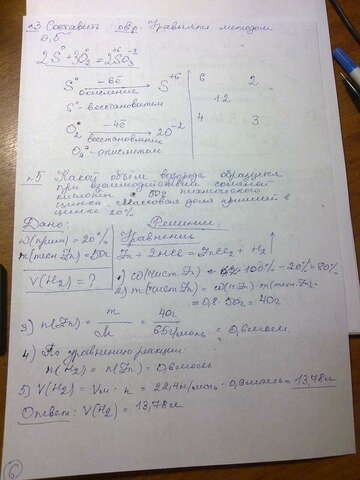 №3 Составить овр. Уравнять методом
э.б.
2S⁰+3O₂⁰=2S⁺⁶O₃⁻²
S⁰ −6ē → S⁺⁶ 6 2
окисление
S⁰ - восстановитель 12
O₂⁰ −4ē → 2O⁻² 4 3
восстановление
O₂⁰ - окислитель
№5 Какой объем водорода образуется
при взаимодействии соляной
кислоты с 50г технического
цинка. Массовая доля примесей в
цинке 20%
Дано: Решение:
ω(прим)=20% Уравнение
m(техн Zn)=50г Zn + 2HCl = ZnCl₂ + H₂↑
V(H₂) = ? 1) ω(чист.Zn) = 100% - 20% = 80%
2) m(чист.Zn) = ω(ч.Zn) · m(техн.Zn) =
= 0,8 · 50г = 40г
3) n(Zn) = m/M = 40г/65г/моль = 0,6моль
4) По уравнению реакции:
n(H₂) = n(Zn) = 0,6моль
5) V(H₂) = Vм · n = 22,4л/моль · 0,6моль = 13,78л
Ответ: V(H₂) = 13,78л
6